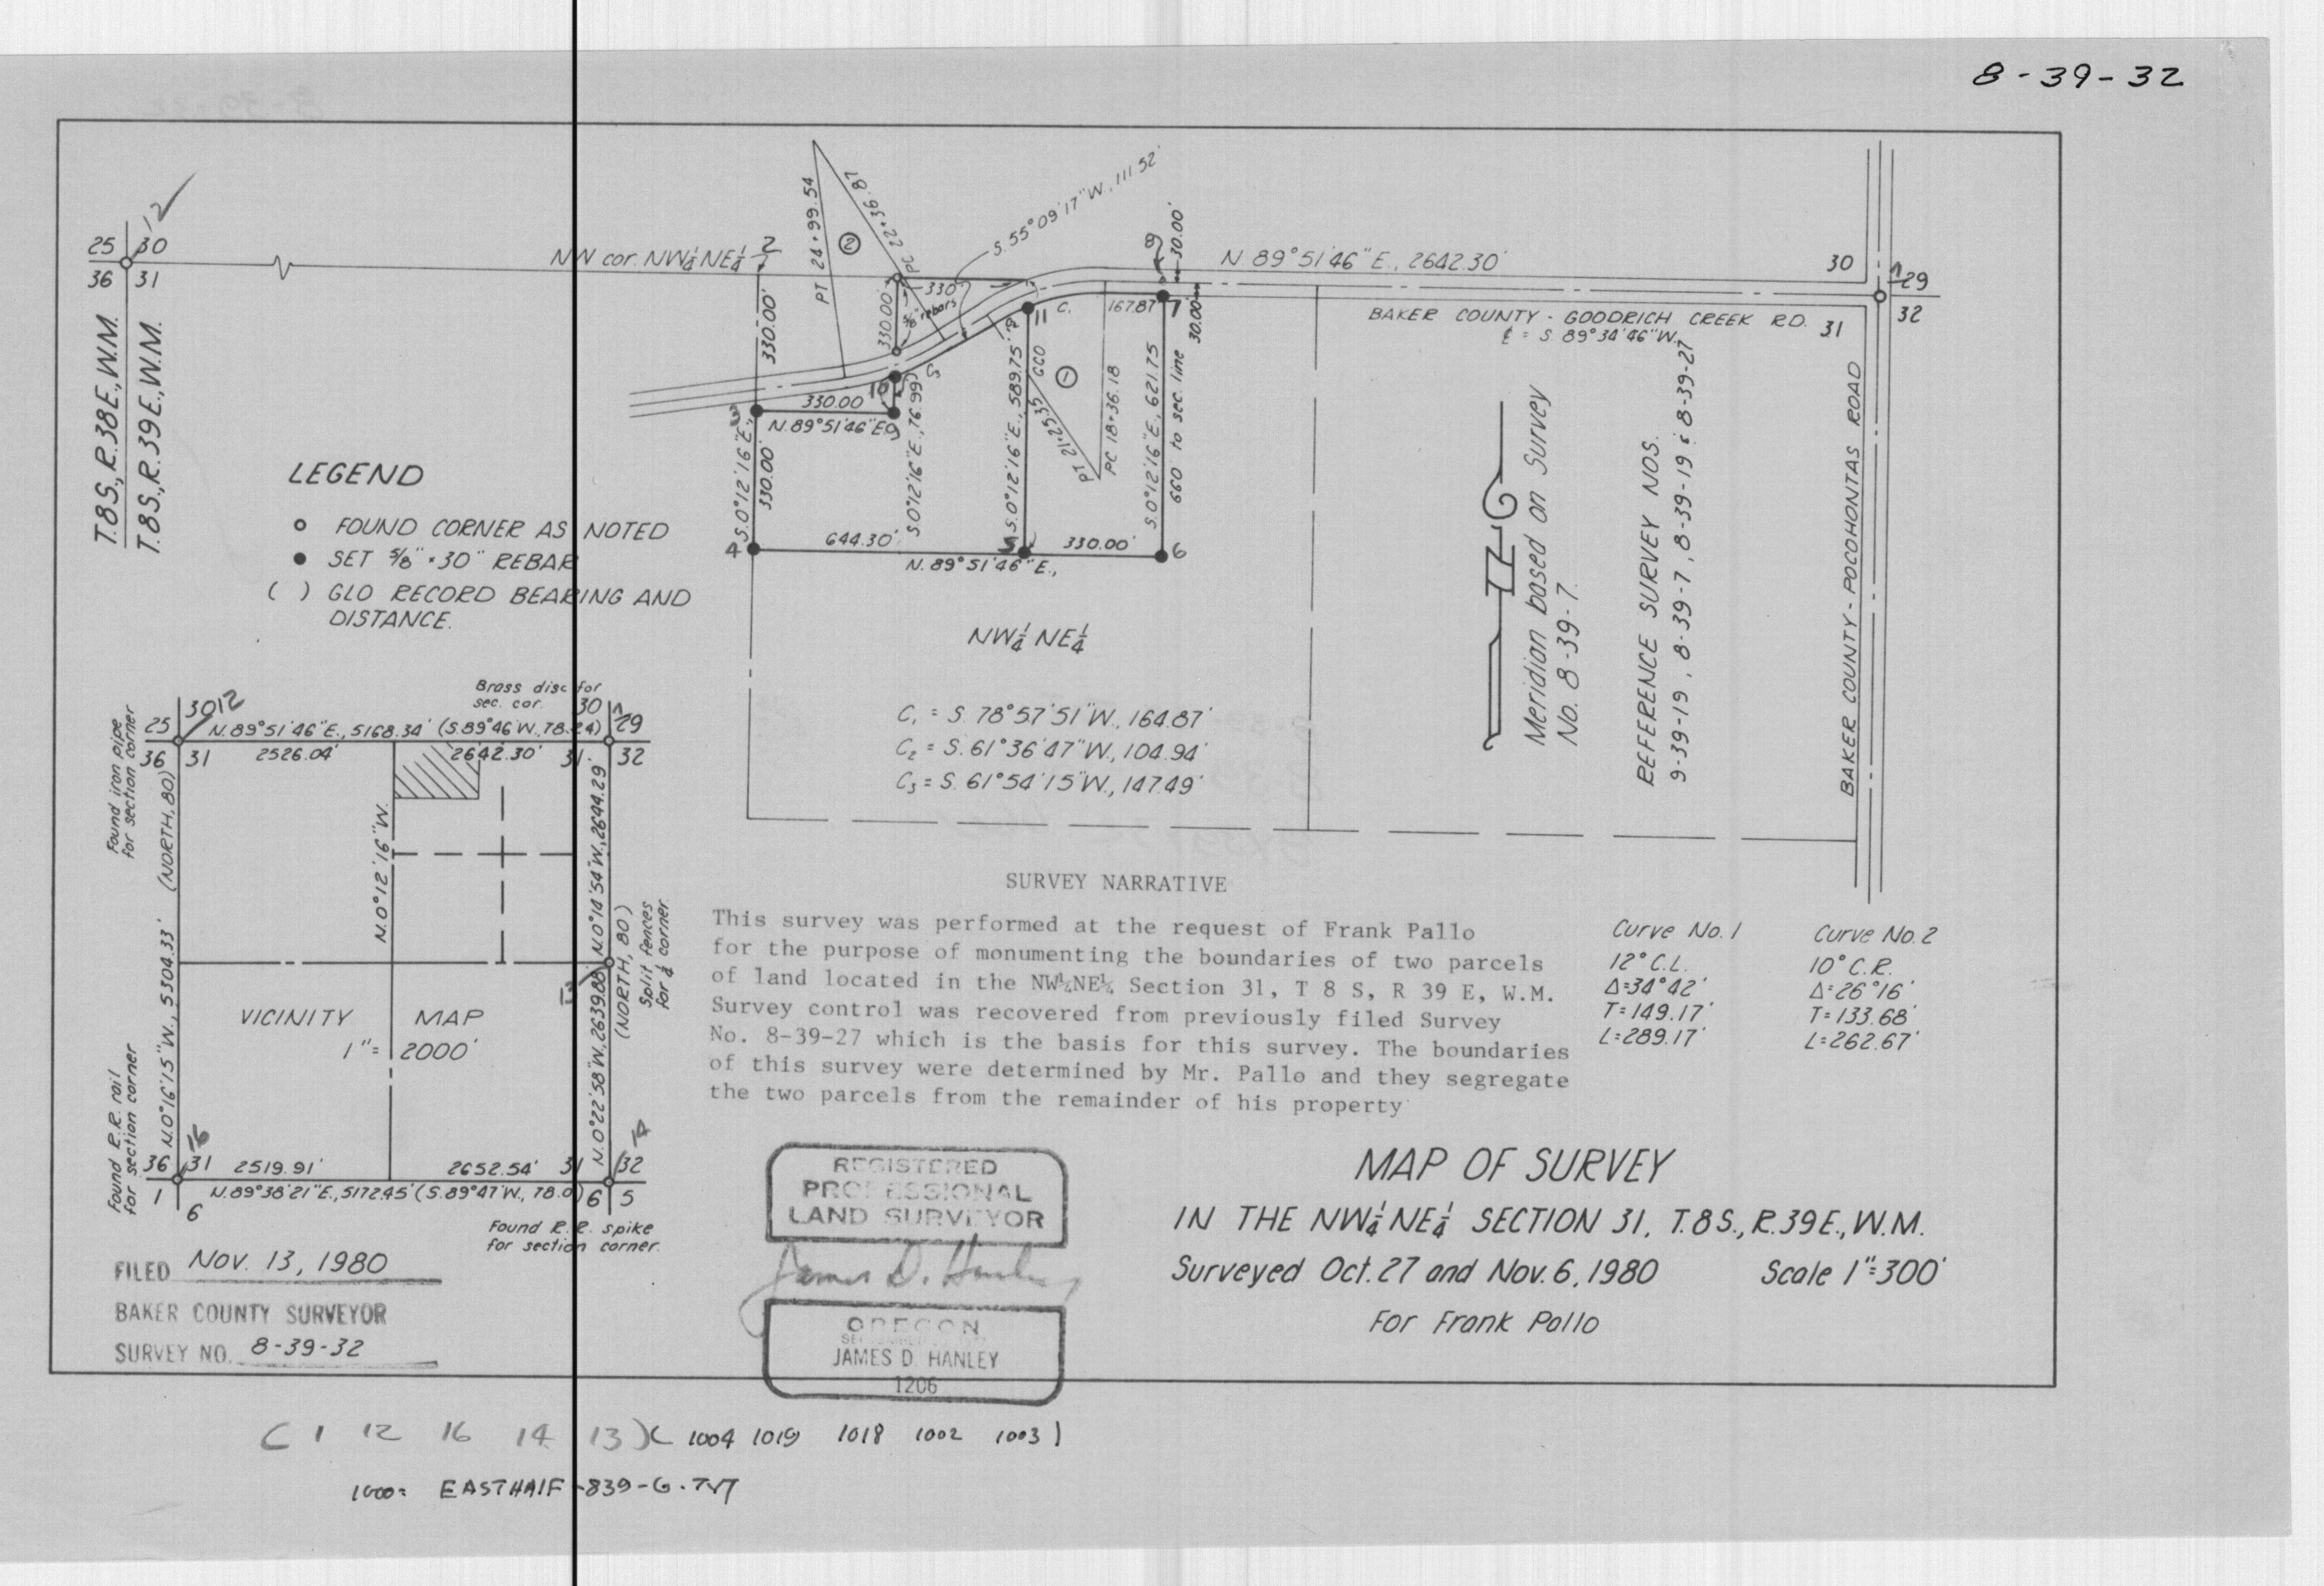 8-39-32
25 30 12
36 31
T.8S., R.38E., W.M.
T.8S., R.39E., W.M.
NW cor. NW¼NE¼ 2
PT 24+99.54
PC 22+36.87
2
S. 55°09'17"W., 111.52'
8
30.00'
N. 89°51'46"E., 2642.30'
30 29
31 32
330.00'
330.00'
330'
⅝" rebars
11
C₁
167.87
7
30.00
BAKER COUNTY - GOODRICH CREEK RD.
℄ = S. 89°34'46"W.
C₂
C₃
10
330.00
3
N. 89°51'46"E.
9
S.0°12'16"E.,
330.00'
S.0°12'16"E., 76.99'
S.0°12'16"E., 589.75'
PT 21+25.35
1
PC 18+36.18
S.0°12'16"E., 621.75
660' to sec. line
4
644.30'
5
330.00'
6
N. 89°51'46"E.,
BAKER COUNTY - POCOHONTAS ROAD
Meridian based on Survey
No. 8-39-7.
REFERENCE SURVEY NOS.
9-39-19, 8-39-7, 8-39-19 & 8-39-27
LEGEND
FOUND CORNER AS NOTED
SET ⅝" × 30" REBAR
( ) GLO RECORD BEARING AND
DISTANCE.
NW¼ NE¼
C₁ = S. 78°57'51"W., 164.87'
C₂ = S. 61°36'47"W., 104.94'
C₃ = S. 61°54'15"W., 147.49'
Brass disc for
sec. cor.
25 30 12
30 29
N. 89°51'46"E., 5168.34' (S.89°46'W., 78.24)
36 31
2526.04'
2642.30'
31 32
Found iron pipe
for section corner
(NORTH, 80)
N.0°16'15"W., 5304.33'
N.0°12'16"W.
N.0°14'54"W., 2644.29
13
N.0°22'58"W., 2639.88'
(NORTH, 80)
Split fences
for ¼ corner
VICINITY MAP
1" = 2000'
Found R.R. rail
for section corner
16
14
36 31
2519.91'
2652.54'
31 32
1 6
N.89°38'21"E., 5172.45' (S.89°47'W., 78.0)
6 5
Found R.R. spike
for section corner.
SURVEY NARRATIVE
This survey was performed at the request of Frank Pallo
for the purpose of monumenting the boundaries of two parcels
of land located in the NW¼NE¼ Section 31, T 8 S, R 39 E, W.M.
Survey control was recovered from previously filed Survey
No. 8-39-27 which is the basis for this survey. The boundaries
of this survey were determined by Mr. Pallo and they segregate
the two parcels from the remainder of his property
Curve No. 1
12° C.L.
Δ=34°42'
T=149.17'
L=289.17'
Curve No. 2
10° C.R.
Δ=26°16'
T=133.68'
L=262.67'
FILED Nov. 13, 1980
BAKER COUNTY SURVEYOR
SURVEY NO. 8-39-32
REGISTERED
PROFESSIONAL
LAND SURVEYOR
James D. Hanley
OREGON
JAMES D. HANLEY
1206
MAP OF SURVEY
IN THE NW¼ NE¼ SECTION 31, T.8S., R.39E., W.M.
Surveyed Oct. 27 and Nov. 6, 1980 Scale 1"=300'
For Frank Pallo
( 1 12 16 14 13 ) ( 1004 1019 1018 1002 1003 )
1000= EASTHAIF-839-G.TVT